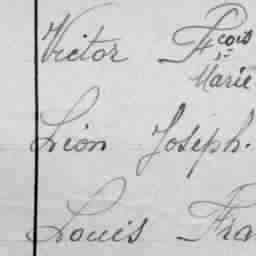 Victor Fçois
Marie
Léon Joseph.
Louis Fra